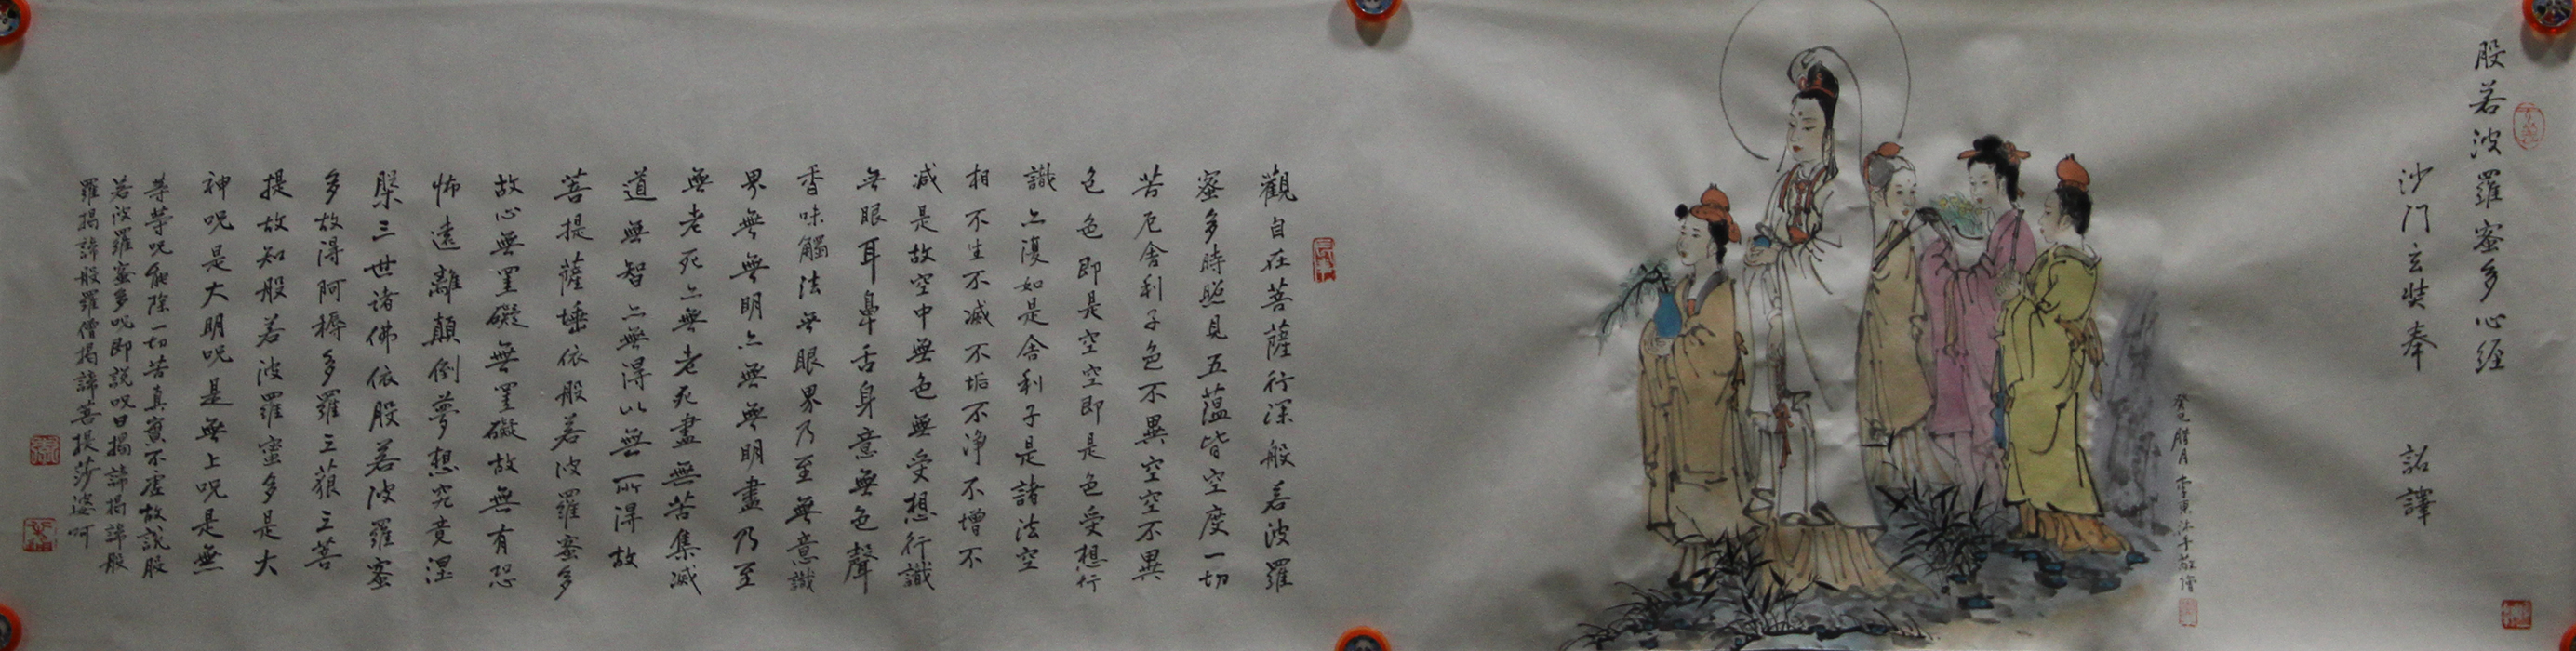 般若波羅蜜多心經
沙門玄奘奉 詔譯
癸巳腊月李東沐手敬繪
觀自在菩薩行深般若波羅
蜜多時照見五蘊皆空度一切
苦厄舍利子色不異空空不異
色色即是空空即是色受想行
識亦復如是舍利子是諸法空
相不生不滅不垢不淨不增不
減是故空中無色無受想行識
無眼耳鼻舌身意無色聲
香味觸法無眼界乃至無意識
界無無明亦無無明盡乃至
無老死亦無老死盡無苦集滅
道無智亦無得以無所得故
菩提薩埵依般若波羅蜜多
故心無罣礙無罣礙故無有恐
怖遠離顛倒夢想究竟涅
槃三世诸佛依般若波羅蜜
多故得阿耨多羅三藐三菩
提故知般若波羅蜜多是大
神呪是大明呪是無上呪是無
等等呪能除一切苦真實不虛故說般
若波羅蜜多呪即說呪曰揭諦揭諦般
羅揭諦般羅僧揭諦菩提莎婆呵